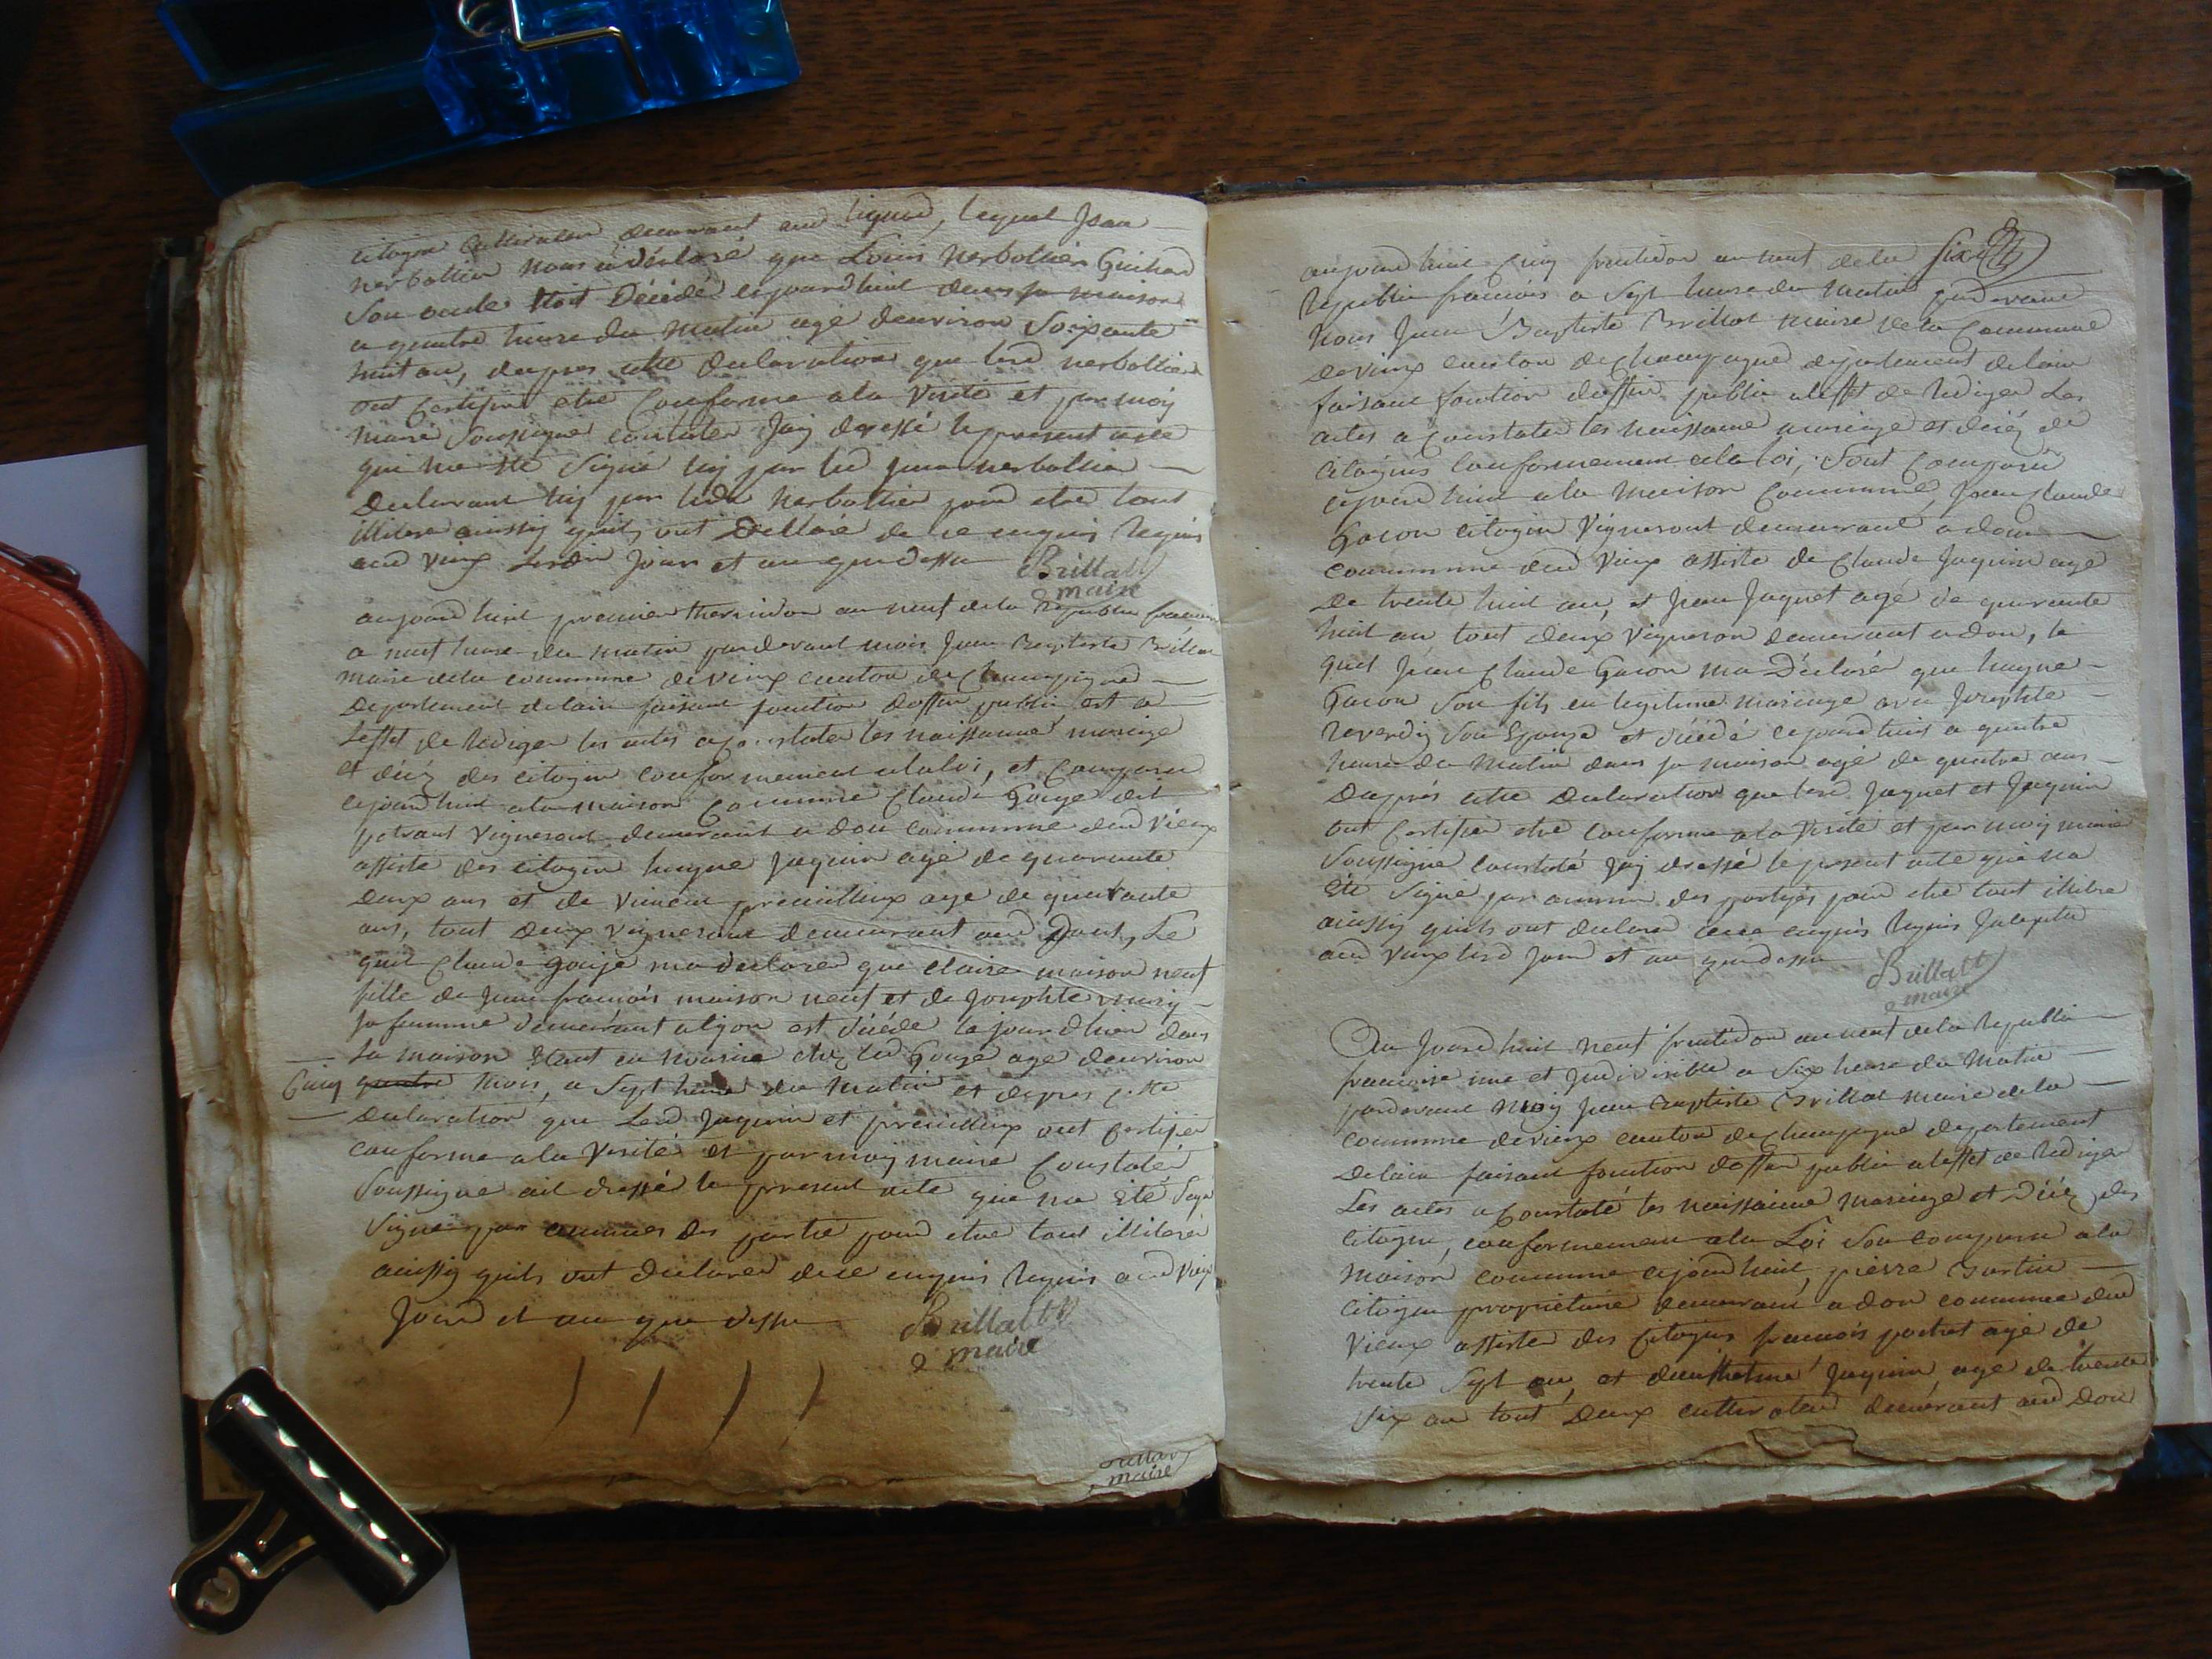 citoyen Cultivateur demeurant aud lignod, lequel Jean
nerbollier nous a déclaré que Louis Nerbollier Guichard
Son oncle étoit Décédé cejourdhuit dans sa maison
a quatre heure du matin agé denviron Soixante
huit an, dapres cette declaration que lesd nerbollier
ont Certifier etre Conforme a la Verité et par moy
maire Soussigné constater Jay dressé le present acte
qui na été Signé ny par led jean nerbollier
Declarant ny par nerbollier pour etre tout
illitere aussy quils ont Dellaré de ce enquis Requis
aud Vieux Lesdit Jour et an que dessu
Brillat
maire
aujourdhuit premier thermidor an neuf de la Republi francais
a neuf heure du matin pardevant mois Jean Baptiste Brillat
maire dela commune de Vieux canton de Champagne
Departement delain faisant fonction doffier public est a
Leffet de Rediger les actes a constater les naissance mariage
et décéz des citoyen conformement alaloi, et Comparu
cejourdhuit ala maison Commune Claude Gouje dit
vigneront demeurant a don commune dud Vieux
assiste des citoyen hugue Jaquin agé de quarante
Deux ans et de Vincent agé de quarante
ans, tout deux vigneront demeurant aud Dont, Le
quel Claude Gouje ma declarer que claire maison neuf
fille de Jean françois maison neuf et de Josephte
sa femme demeurant a lyon est Décédé le jourdhier dans
Sa maison Etant en nourice chez led Gouge age denviron
Cinq quatre mois, a Sept heure du matin et dapres cette
declaration que Lesd Jaquin et ont certifier
conforme a la Verité et par moy maire Constater
Soussigné ait dressé le present acte qui na Eté Sign
Signer par aucunes des partie pour etre tout illiteré
aussy quils ont declarer dece enquis Requis aud Vieux
Jour et an que dessu
Brillatt
maire
Brillat
maire
Six
aujourdhuit Cinq fructidor an neuf dela
Republi francais a Sept heure du matin pardevant
Nous Jean Baptiste Brillat maire dela Commune
de Vieux canton de Champagne departement delain
faisant fonction doffier public aleffet de Rediger Les
actes a Constater les naissance mariage et décéz de
Citoyens Conformement alaloi, Sont Comparu
cejourdhuit ala maison Commune, Jean Claude
Gacon citoyen Vigneront demeurant a don
commune dud Vieux assiste de Claude Jaquin agé
De trente huit an, et Jean Jaquet agé de quarante
huit an tout deux Vigneron demeurant a don, le
quel Jean Claude Gacon ma Déclarér que hugue
Gacon Son fils en legitime mariage avec Josephte
Reverdy Son Epouse et Décédé cejourdhuit a quatre
heure du Matin dans sa maison agé de quatre ans
Daprés cette Declaration que lesd Jaquet et Jaquin
ont Certifier etre Conforme a la Verité et par moy maire
Soussigné Constaté Jay dressé le present acte qui na
Eté Signé par aucun des partyes pour etre tout illitere
aussy quils ont declaré dece enquis Requis
aud Vieux lesd Jour et an que dessu
Brillatt
maire
Au Jourdhuit neuf fructidor an neuf dela Republi
francaise une et Jndivisible a Six heure du Matin
pardevant Moy Jean Baptiste Brillat maire dela
commune de vieux canton de Champagne departement
Delain faisant fonction doffier public aleffet de Rediger
Les actes a Constaté les naissance mariage et Décéz des
Citoyen, conformement ala Loi Son comparu ala
Maison commune cejourdhuit, pierre
Citoyen propriétaire demeurant a don commune dud
Vieux assiste des Citoyen francois agé de
trente Sept an, et Jaquin, agé de trente
Six an tout Deux cultivateur demeurant aud Don